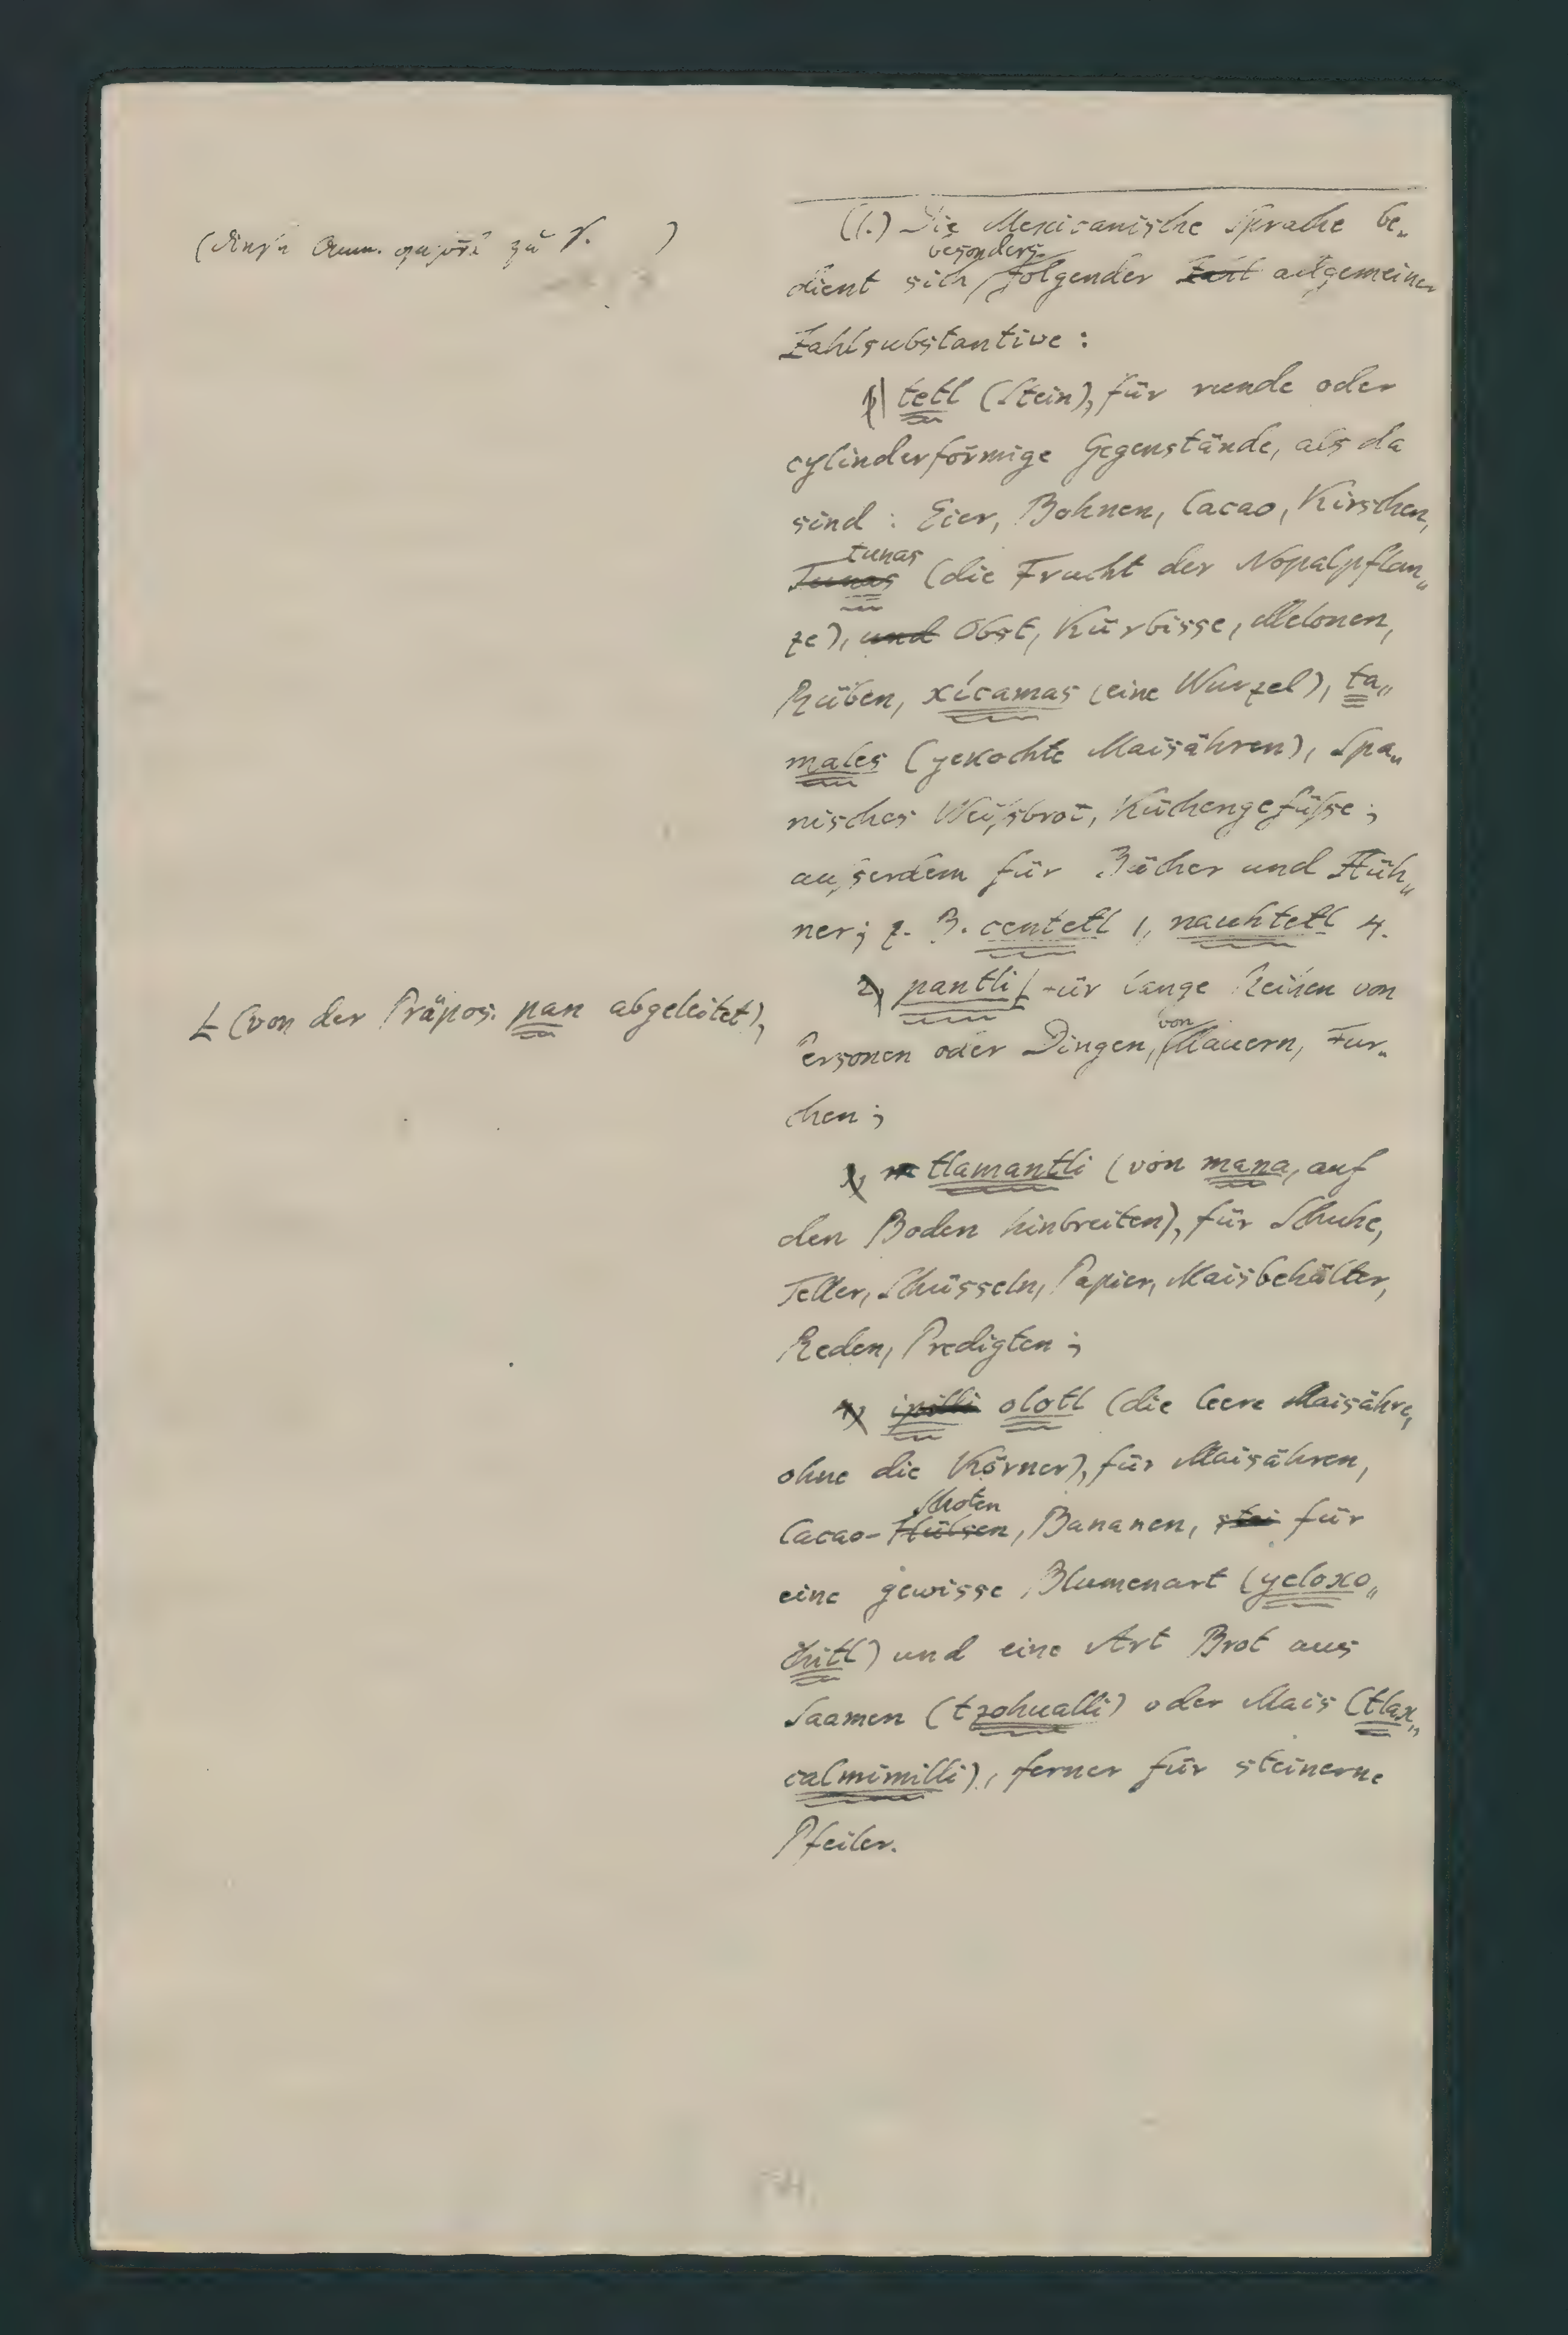 (Diese Anm. gehört zu S. )
(1.) Die Mexicanische Sprache be-
besonders
dient sich folgender Zahl allgemeiner
Zahlsubstantive:
1) tetl (Stein), für runde oder
cylinderförmige Gegenstände, als da
sind: Eier, Bohnen, Cacao, Kirschen,
tunas
Tunas (die Frucht der Nopalpflan-
ze), und Obst, Kürbisse, Melonen,
Rüben, xícamas (eine Wurzel), ta-
males (gekochte Maisähren), Spa-
nisches Weißbrot, Küchengefäße;
außerdem für Bücher und Hüh-
ner; z. B. centetl 1, nauhtetl 4.
2) pantli für lange Reihen von
L (von der Präpos. pan abgeleitet),
von
Personen oder Dingen, Mauern, Fur-
chen;
3) tlamantli (von mana, auf
den Boden hinbreiten), für Schuhe,
Teller, Schüsseln, Papier, Maisbehälter,
Reden, Predigten;
4) ipilli olotl (die leere Maisähre,
ohne die Körner), für Maisähren,
Schoten
Cacao-Hülsen, Bananen, stei für
eine gewisse Blumenart (yeloxo-
chitl) und eine Art Brot aus
Saamen (tzohualli) oder Mais (tlax-
calmimilli), ferner für steinerne
Pfeiler.